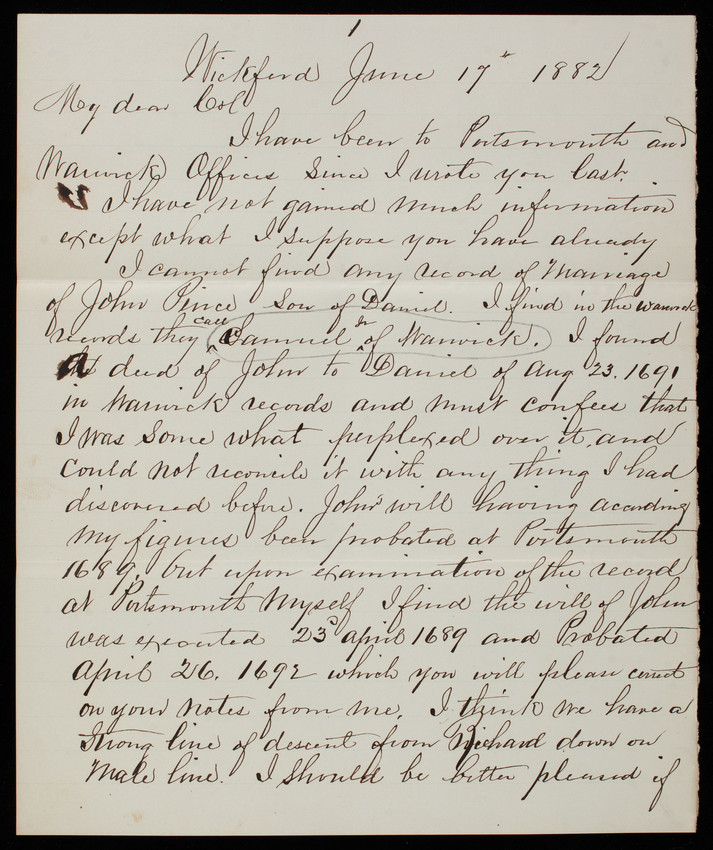 1
Wickford June 17" 1882
My dear Col
I have been to Portsmouth and
Warwick Offices since I wrote you last.
I have not gained much information
except what I suppose you have already
I cannot find any record of Marriage
of John Peirce Son of Daniel. I find in the Warwick
records they call Samuel Jr of Warwick. I found
a deed of John to Daniel of Aug 23. 1691
in Warwick records and must confess that
I was some what perplexed over it, and
could not reconcile it with any thing I had
discovered before. John's will having according
my figures been probated at Portsmouth
1689. but upon examination of the record
at Portsmouth Myself I find the will of John
was executed 23d april 1689 and Probated
April 26. 1692 which you will please correct
on your notes from me. I think we have a
Strong line of descent from Richard down on
Male line. I should be better pleased if